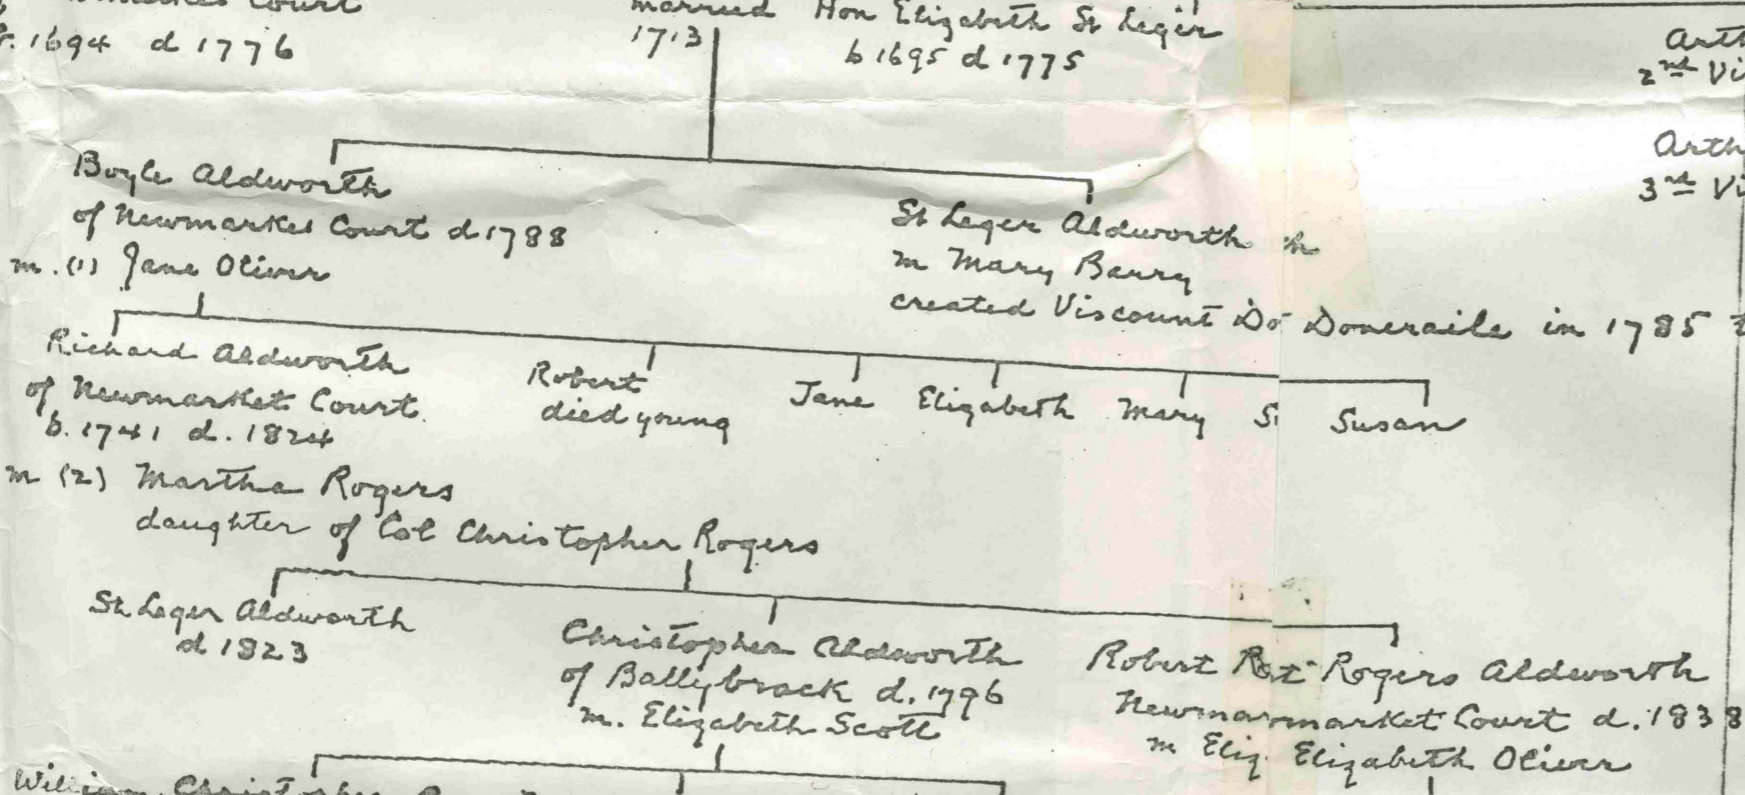 Court
b. 1694 d 1776
married Hon Elizabeth St Leger
1713 b 1695 d 1775
Arth
2nd Vi
Arth
3rd Vi
Boyle Aldworth
of Newmarket Court d 1788
m. (1) Jane Oliver
St Leger Aldworth th
m Mary Barry
created Viscount Do Doneraile in 1785
Richard Aldworth
of Newmarket Court.
b. 1741 d. 1824
Robert
died young
Jane
Elizabeth
Mary
S
Susan
m (2) Martha Rogers
daughter of Col Christopher Rogers
St Leger Aldworth
d 1823
Christopher Aldworth
of Ballybrack d. 1796
m. Elizabeth Scott
Robert Rogers Aldworth
Newmarmarket Court d. 1838
m Eliz. Elizabeth Oliver
William Christopher